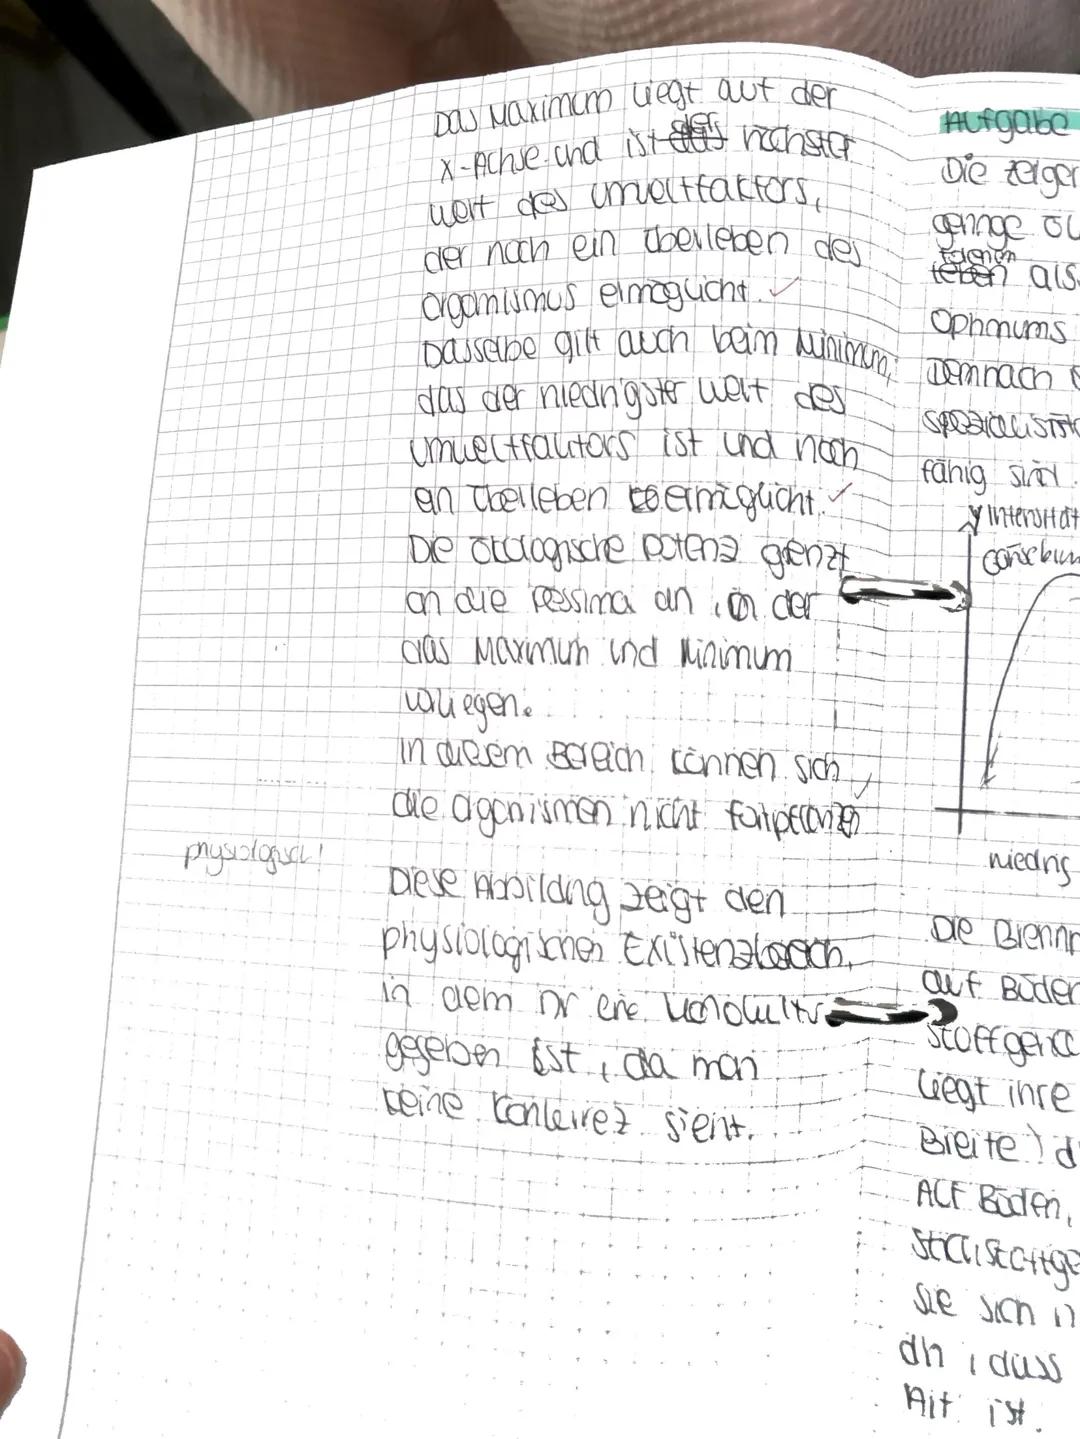 Das Maximum liegt auf der
x-Achse und ist das höchster
Wert des Umweltfaktors,
der noch ein Überleben des
Organismus ermöglicht.
Dasselbe gilt auch beim Minimum,
das der niedrigster Wert des
Umweltfaktors ist und noch
ein Überleben ermöglicht.
Die ökologische Potenz grenzt
an die Pessima an, in der
das Maximum und Minimum
vorliegen.
In diesem Bereich können sich
die Organismen nicht fortpflanzen
physiologisch!
Diese Abbildng zeigt den
physiologischen Existenzbereich,
in dem nr eine Monokultur
gegeben ist, da man
keine Konkurrez sieht.
Aufgabe
Die Zeiger
geringe
als
Optimums
Demnach
fähig sind.
y Intensität
niedrig
Die Brenn
auf Böden
liegt ihre
Breite) d
Auf Böden,
sie sich
dh, dass
Art ist.